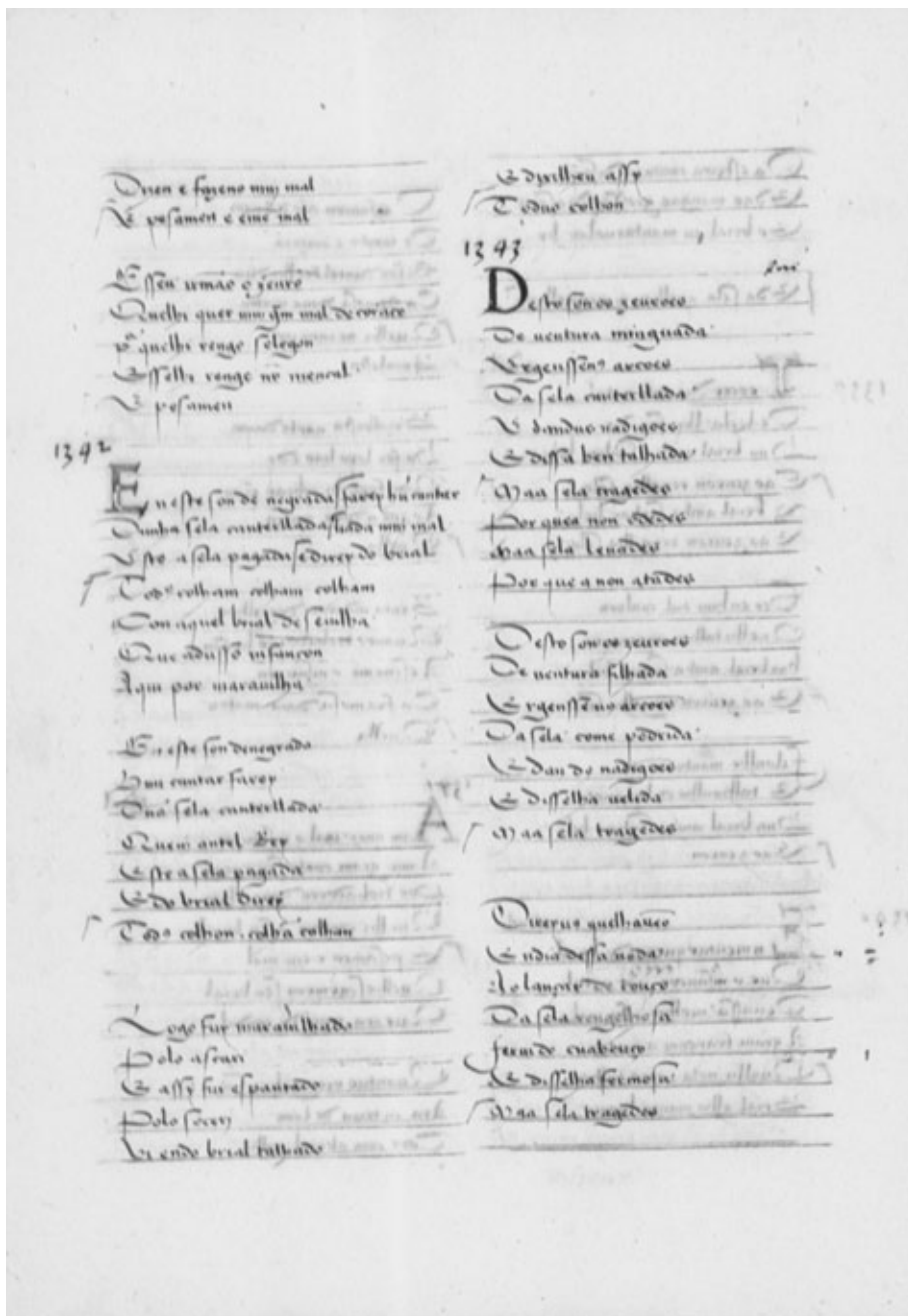 Quen e fazeno mui mal
E pesamen e eme mal
Essen irmão
Quelhi quer mui gm mal de coraço
quelhi tenge selegon
Esselhi tenge no mencal
E pesamen
1392
En este son de negrada farey hũ cantar
Dunha sela canterllada liada mui mal
Esto a sela pagada e direy do brial
Tod9 colham colham colham
Con aquel brial de seuilha
Que adusso infançon
Aqui por marauilha
En este son denegrado
Huu cantar farey
Dũa sela canterllada
Quem antel Rey
Este a sela pagada
E do brial direy
Tod9 colhon colhã colhan
Logo fuy marauilhado
Polo ascari
E assy fui espantado
Polo soceri
Vi endo brial talhado
E dixilheu assy
Toduo colhon
1393
Desto son os zeuroes
De uentura minguada
Ergenssen9 arcoes
Da sela canterllada
E dandus nadigoes
E dissa ben talhada
Maa sela tragedes
Por quea non odedes
Maa sela leuades
Por que a non atades
Desto son os zeuroes
De uentura falhada
Ergenssẽ nos arcoes
Da sela come podrida
E dan do nadigoes
E disselha uelida
Maa sela tragedes
Queras quelhaueo
Endia dessa uoda
Ao lançar de touço
Da sela rengelhosa
feriu de cuabouço
E disselha fermosa
Maa sela tragedes